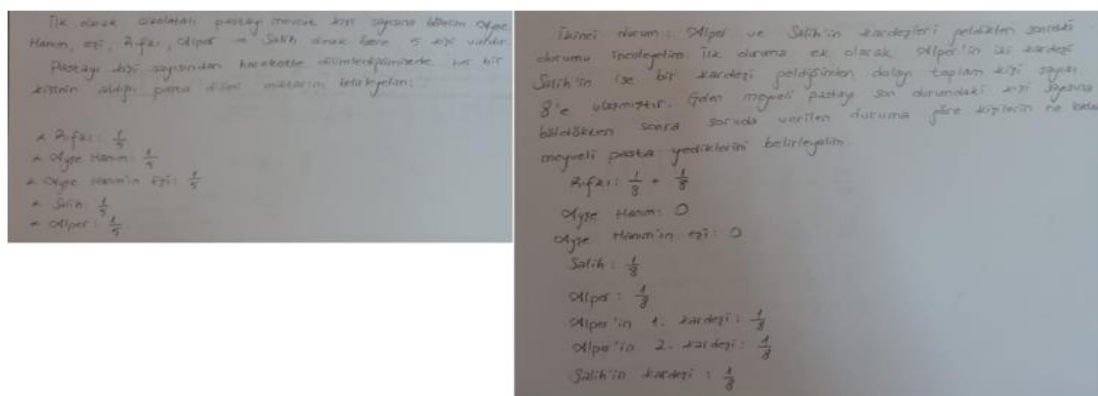 İlk olarak çikolatalı pastayı mevcut kişi sayısına bölelim. Ayşe
Hanım, eşi, Rıfkı, Alper ve Salih olmak üzere 5 kişi vardır.
Pastayı kişi sayısından hareketle dilimlediğimizde her bir
kişinin aldığı pasta dilimi miktarını belirleyelim:
* Rıfkı: 1/5
* Ayşe Hanım: 1/5
* Ayşe Hanım'ın Eşi: 1/5
* Salih: 1/5
* Alper: 1/5
İkinci durum: Alper ve Salih'in kardeşleri geldikten sonraki
durumu inceleyelim. İlk duruma ek olarak Alper'in iki kardeşi
Salih'in ise bir kardeşi geldiğinden dolayı toplam kişi sayısı
8'e ulaşmıştır. Gelen meyveli pastayı son durumdaki kişi sayısına
böldükten sonra soruda verilen duruma göre kişilerin ne kadar
meyveli pasta yediklerini belirleyelim.
Rıfkı: 1/8 + 1/8
Ayşe Hanım: 0
Ayşe Hanım'ın eşi: 0
Salih: 1/8
Alper: 1/8
Alper'in 1. kardeşi: 1/8
Alper'in 2. kardeşi: 1/8
Salih'in kardeşi: 1/8